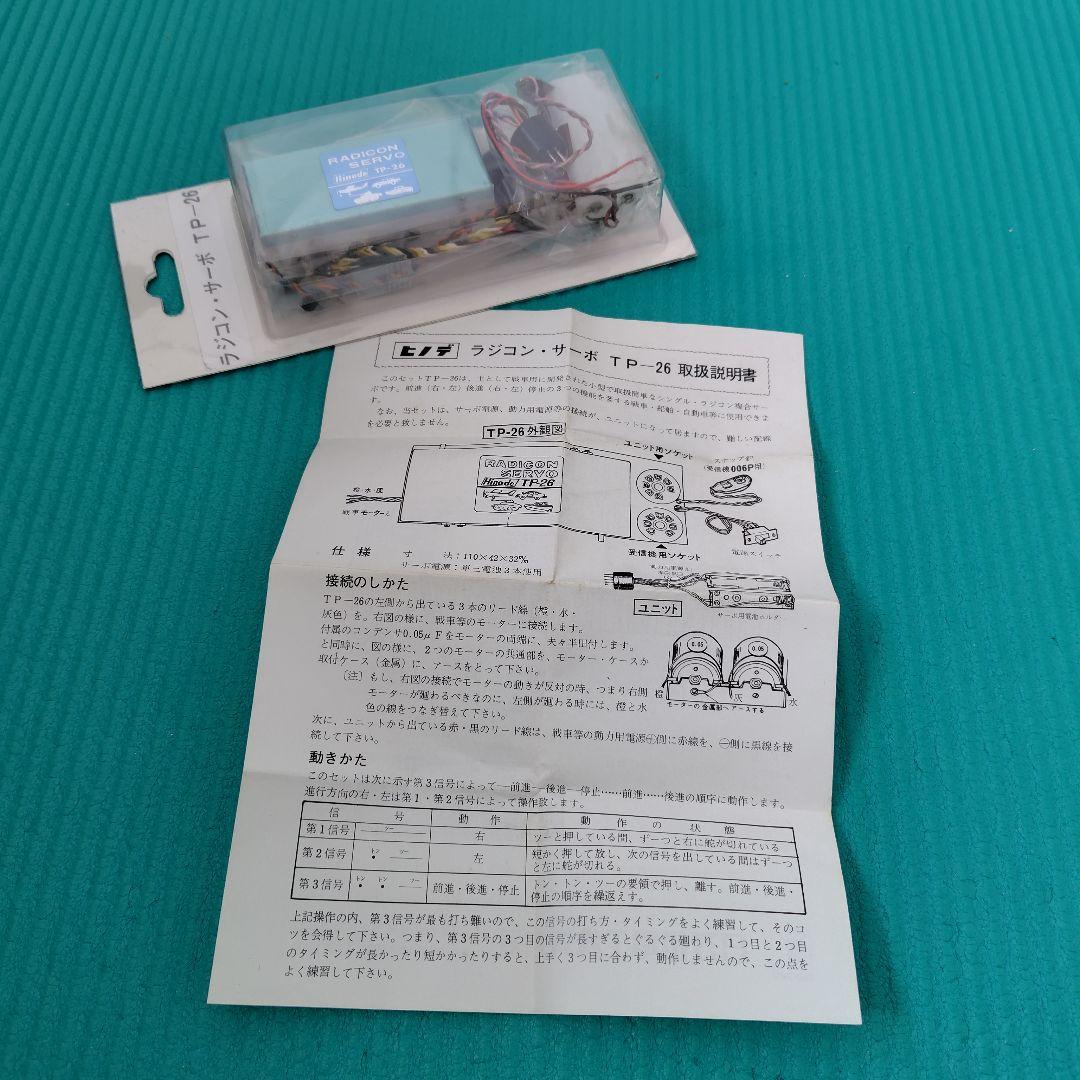 RADICON
SERVO
Hinode TP-26
ラジコン・サーボ TP-26
ヒノデ ラジコン・サーボ TP-26 取扱説明書
このセットTP-26は、主として戦車用に開発された小型で取扱簡単なシングル・ラジコン複合サー
ボです。前進(右・左)後進(右・左)停止の3つの機能を有する戦車・船舶・自動車等に使用できま
す。
なお、当セットは、サーボ電源、動力用電源等の接続が、ユニットになって居ますので、難しい配線
を必要と致しません。
TP-26外観図
ユニット用ソケット
スナップ
(受信機006P用)
RADICON
SERVO
Hinode TP-26
橙・水・灰
戦車モーターへ
受信機用ソケット
電源スイッチ
仕様 寸法:110×42×32%
サーボ電源:単三電池3本使用
ユニット
サーボ用電池ホルダー
接続のしかた
TP-26の左側から出ている3本のリード線(橙・水・
灰色)を。右図の様に、戦車等のモーターに接続します。
付属のコンデンサ0.05μFをモーターの両端に、夫々半田付します。
と同時に、図の様に、2つのモーターの共通部を、モーター・ケースか
取付ケース(金属)に、アースをとって下さい。
(注)もし、右図の接続でモーターの動きが反対の時、つまり右側
モーターが廻わるべきなのに、左側が廻わる時には、澄と水
色の線をつなぎ替えて下さい。
0.05 0.05
橙 灰 水
モーターの金属部へアースする
次に、ユニットから出ている赤・黒のリード線は、戦車等の動力用電源⊕側に赤線を、⊖側に黒線を接
続して下さい。
動きかた
このセットは次に示す第3信号によって―前進―後進―停止……前進……後進の順序に動作します。
進行方向の右・左は第1・第2信号によって操作致します。
信号 動作 動作の状態
第1信号 ツー 右 ツーと押している間、ずーつと右に舵が切れている
第2信号 トン ツー 左 短かく押して放し、次の信号を出している間はずーつ
と左に舵が切れる。
第3信号 トン トン ツー 前進・後進・停止 トン・トン・ツーの要領で押し、離す。前進・後進・
停止の順序を繰返えす。
上記操作の内、第3信号が最も打ち難いので、この信号の打ち方・タイミングをよく練習して、そのコ
ツを会得して下さい。つまり、第3信号の3つ目の信号が長すぎるとぐるぐる廻わり、1つ目と2つ目
のタイミングが長かったり短かかったりすると、上手く3つ目に合わず、動作しませんので、この点を
よく練習して下さい。